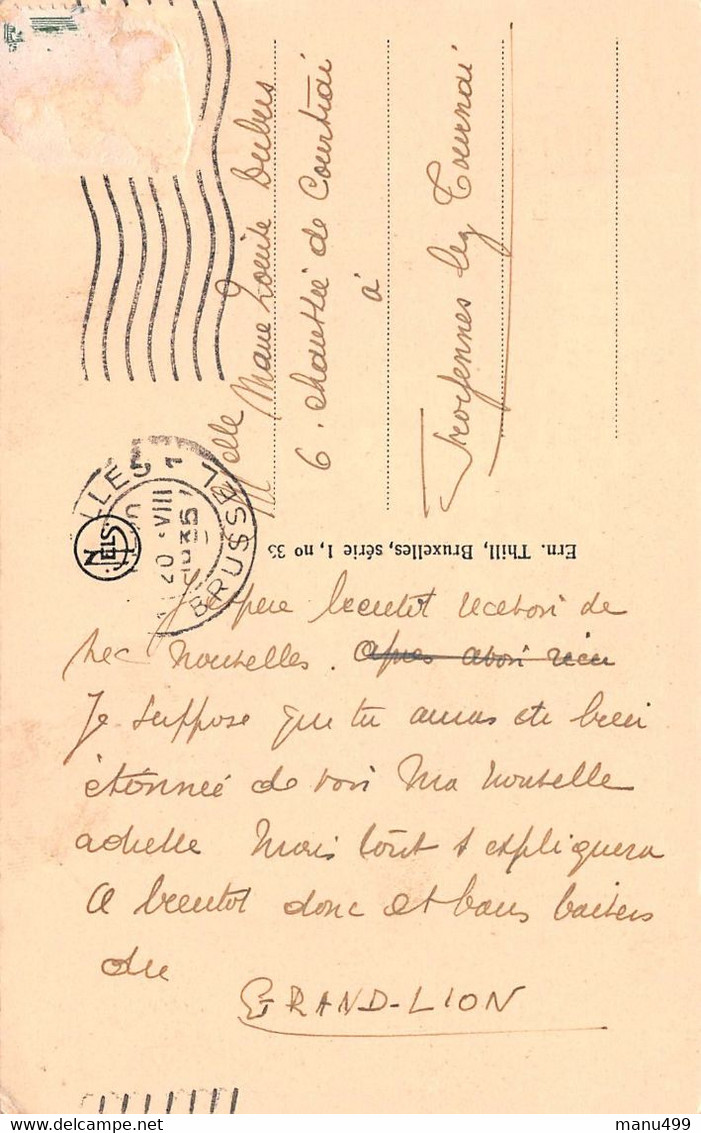 Melle Marie Louise Dubus
6. chaussée de Courtrai
à
Froyennes lez Tournai
BRUXELLES 1 BRUSSEL
20 VIII
1935
NELS
Ern. Thill, Bruxelles, série 1, no 33
J'espere bientot recevoir de
tes nouvelles. Apres avoir recu
Je suppose que tu auras ete bien
étonnée de voir ma nouvelle
adresse Mais tout s expliquera
A bientot donc et bons baisers
du
GRAND-LION
manu499